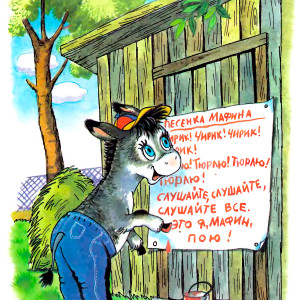 ПЕСЕНКА МАФИНА
ЧИРИК! ЧИРИК! ЧИРИК!
ЧИРИК!
ТЮРЛЮ! ТЮРЛЮ!
ТЮРЛЮ!
СЛУШАЙТЕ, СЛУШАЙТЕ,
СЛУШАЙТЕ ВСЕ.
ЭТО Я, МАФИН,
ПОЮ!